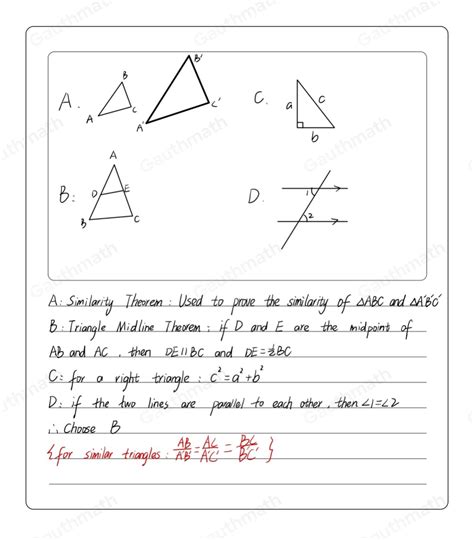 A.
B
A
C
B'
A'
C'
C.
a
c
b
B:
A
D
E
B
C
D.
1
2
A: Similarity Theorem: Used to prove the similarity of △ABC and △A'B'C'
B: Triangle Midline Theorem: if D and E are the midpoint of
AB and AC, then DE∥BC and DE=½BC
C: for a right triangle: c²=a²+b²
D: if the two lines are parallel to each other, then ∠1=∠2
∴ Choose B
{for similar triangles: AB/A'B' = AC/A'C' = BC/B'C'}
Gauthmath